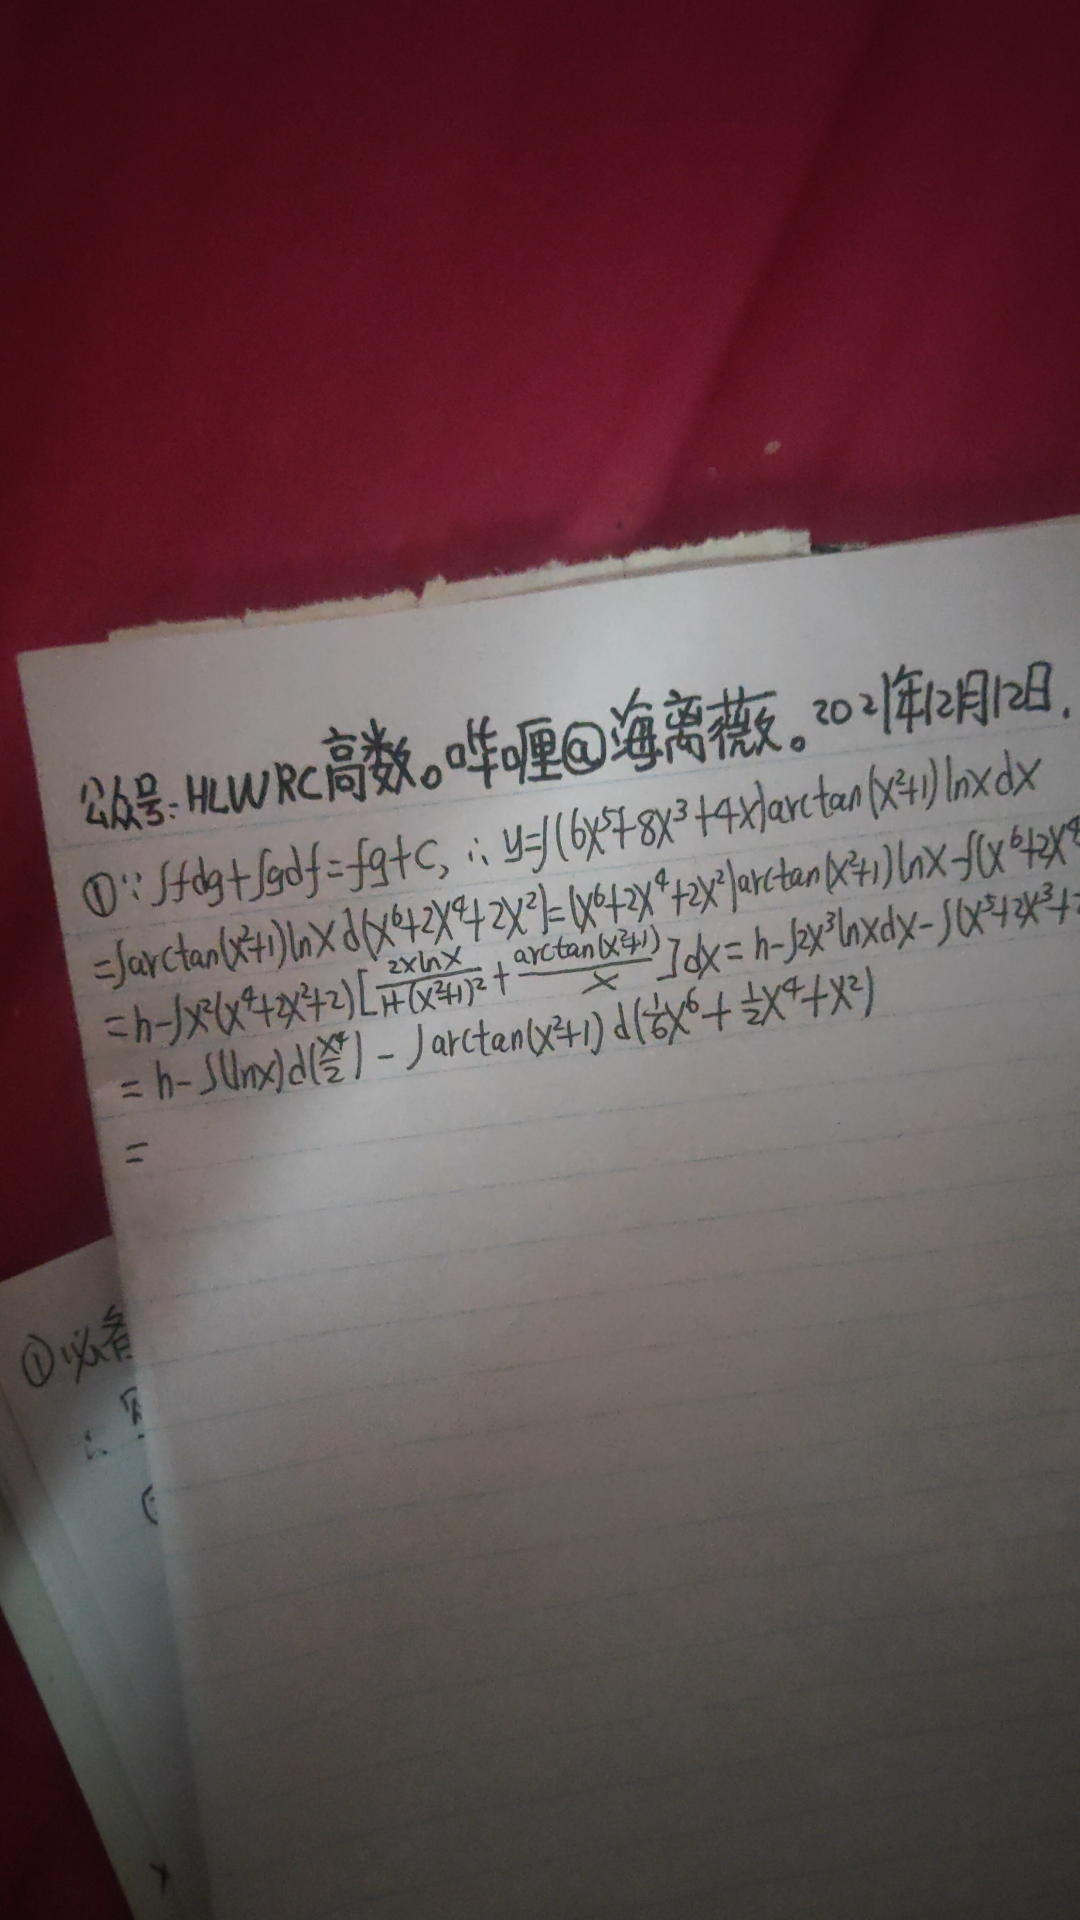 公众号:HLWRC高数。哔喱@海离薇。2021年12月12日.
①∵∫fdg+∫gdf=fg+C,∴y=∫(6x⁵+8x³+4x)arctan(x²+1)lnxdx
=∫arctan(x²+1)lnxd(x⁶+2x⁴+2x²)=(x⁶+2x⁴+2x²)arctan(x²+1)lnx-∫(x⁶+2x⁴
=h-∫x²(x⁴+2x²+2)[2xlnx/1+(x²+1)²+arctan(x²+1)/x]dx=h-∫2x³lnxdx-∫(x⁵+2x³+2
=h-∫(lnx)d(x⁴/2)-∫arctan(x²+1)d(1/6x⁶+1/2x⁴+x²)
=
①必备
∴